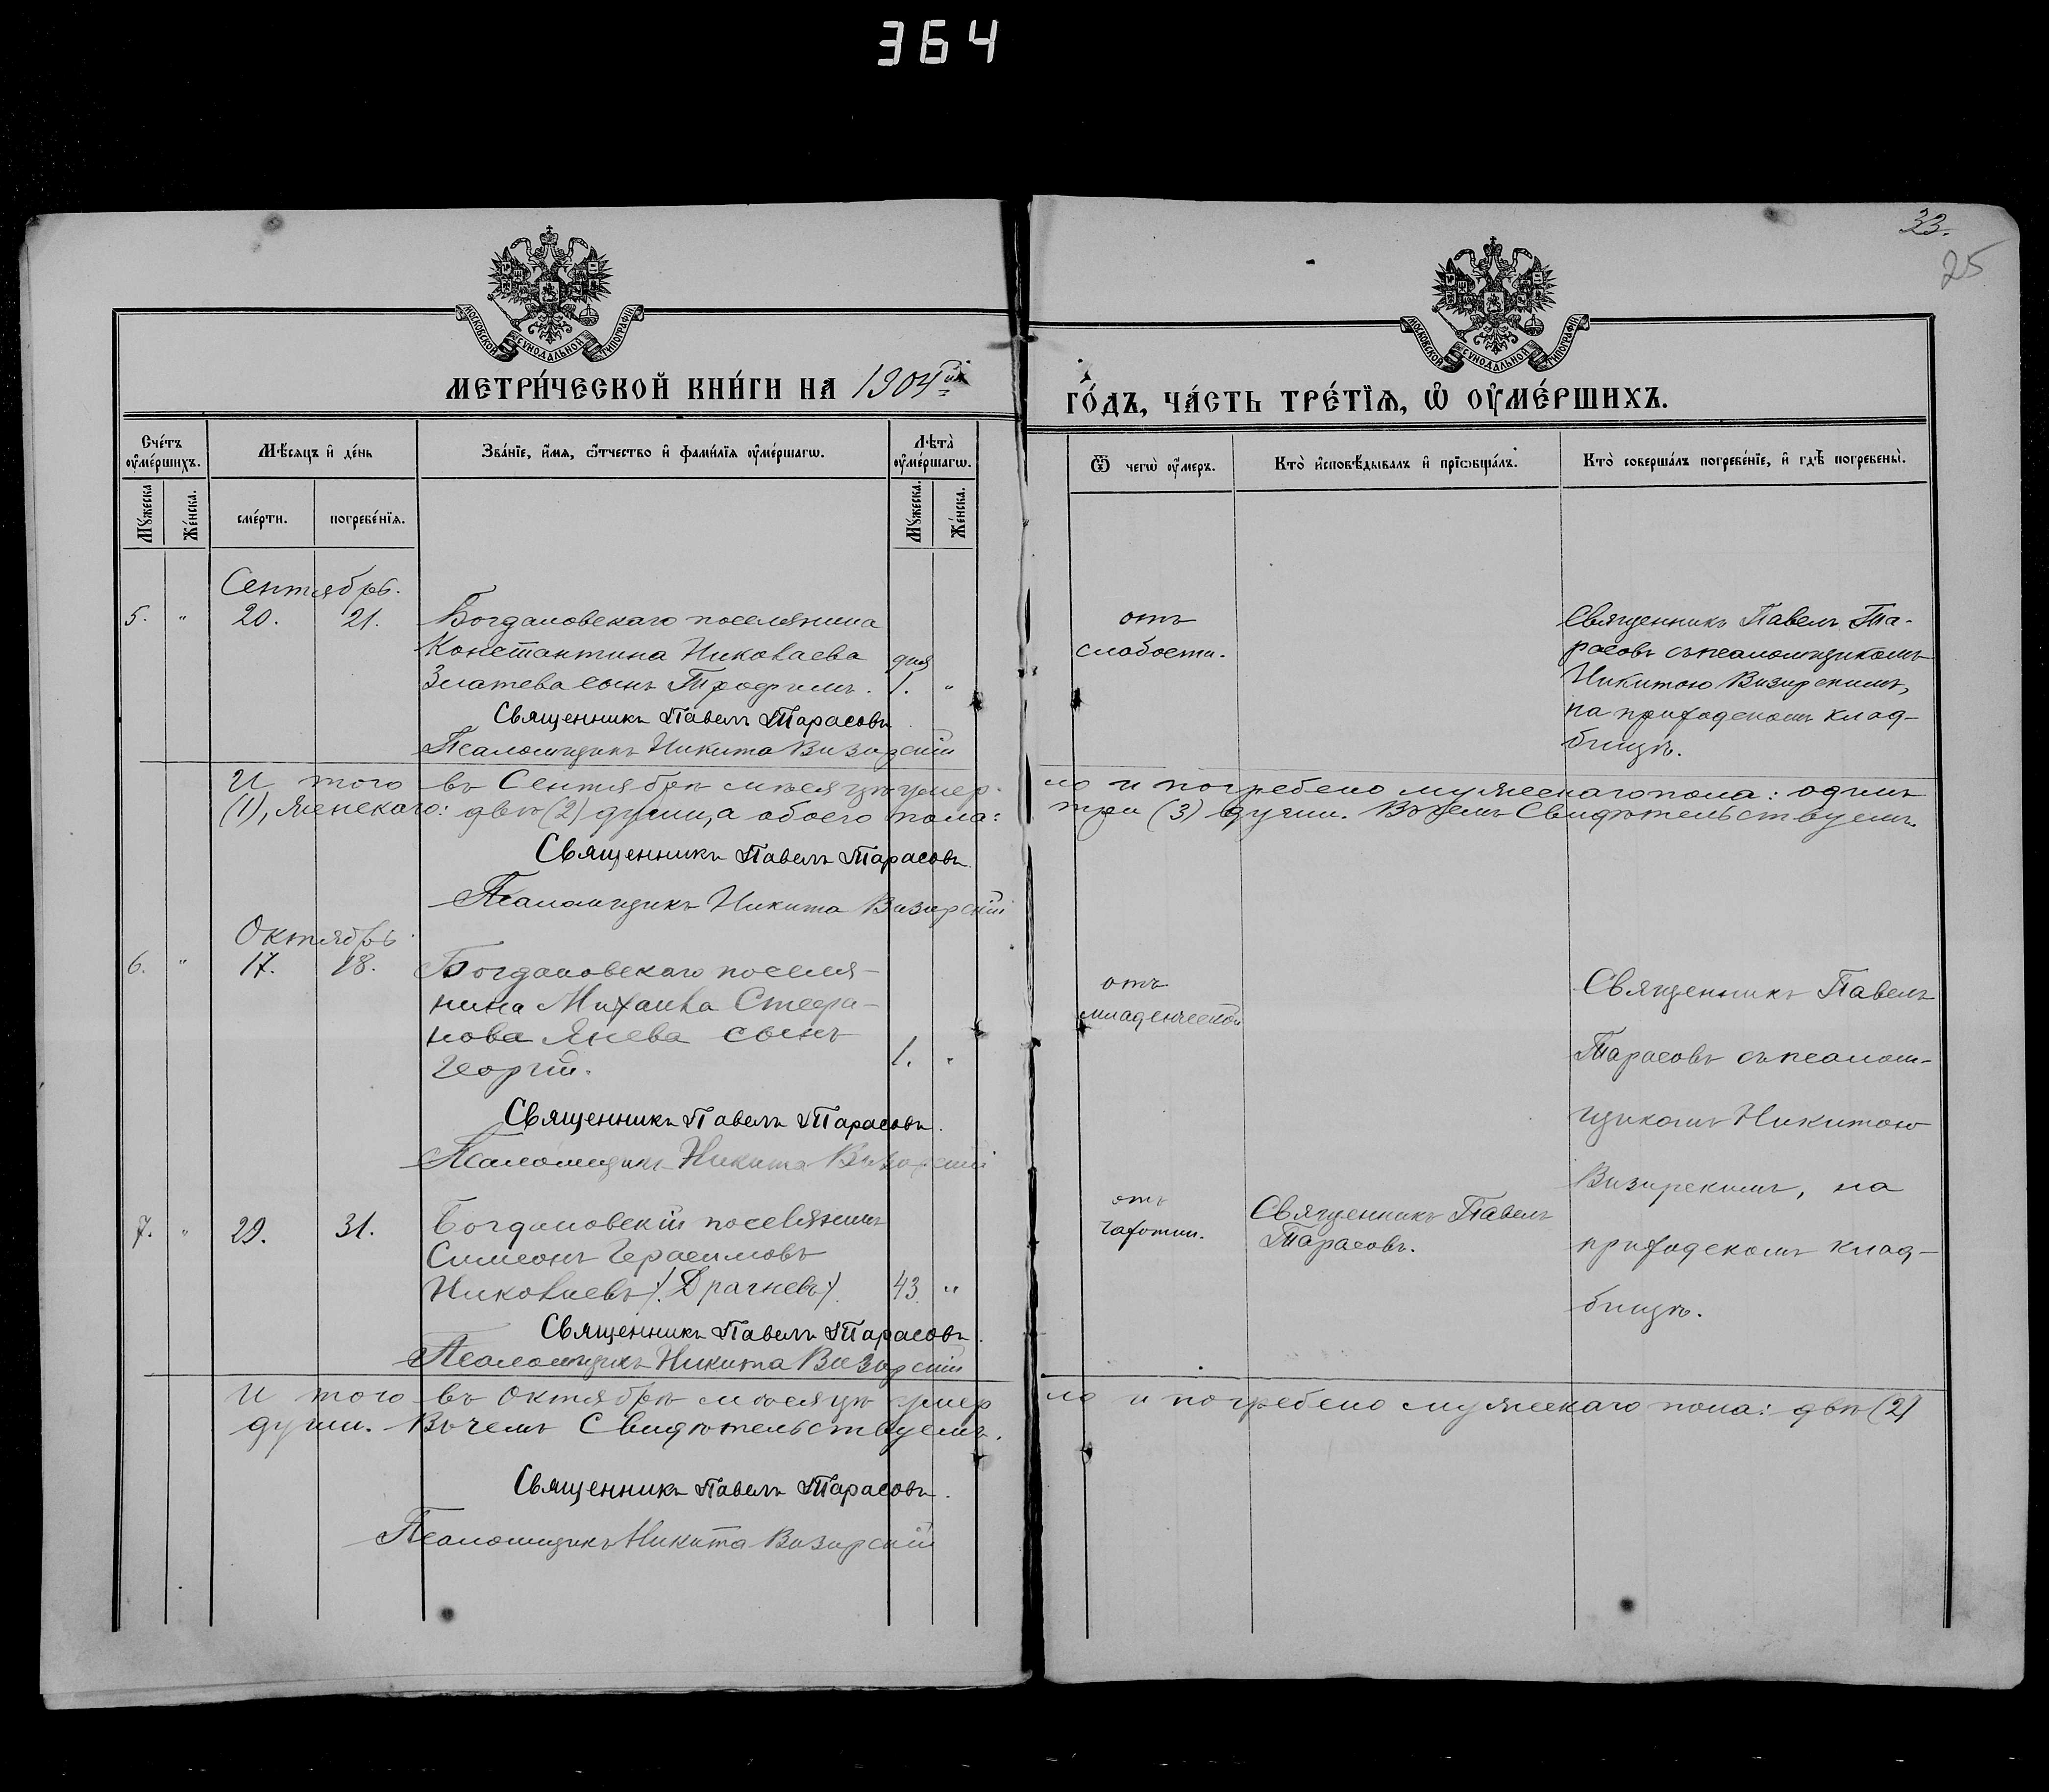 364
33.
25
МОСКОВСКОЙ СѴНОДАЛЬНОЙ ТИПОГРАФІИ
МОСКОВСКОЙ СѴНОДАЛЬНОЙ ТИПОГРАФІИ
МЕТРИ́ЧЕСКОЙ КНИ́ГИ НА 1904ый
ГО́ДЪ, ЧА́СТЬ ТРЕ́ТЇѦ, Ѡ҆ ОУ҆МЕ́РШИХЪ.
Сче́тъ оу҆ме́ршихъ.
Мѣ́сяцъ и҆ де́нь
Зва́нїе, и҆́мя, ѻ҆́тчество и҆ фами́лїя оу҆ме́ршагѡ.
Лѣта̀ оу҆ме́ршагѡ.
Ѿ чегѡ̀ оу҆́меръ.
Кто̀ и҆сповѣ́дывалъ и҆ прїѡбща́лъ.
Кто̀ соверша́лъ погребе́нїе, и҆ гдѣ̀ погребены̀.
Мꙋ́жеска
Же́нска.
сме́рти.
погребе́нїя.
Мꙋ́жеска.
Же́нска.
Сентябрь.
5. " 20. 21. Богдановскаго поселянина
Константина Николаева дня
Златева сынъ Трофимъ. 1. "
Священникъ Павелъ Тарасовъ
Псаломщикъ Никита Визирскій
отъ
слабости.
Священникъ Павелъ Та-
расовъ съ псаломщикомъ
Никитою Визирскимъ,
на приходскомъ клад-
бищѣ.
И того въ Сентябрѣ мѣсяцѣ умер-
ло и погребено мужескаго пола: одинъ
(1), женскаго: двѣ (2) души, а обоего пола:
три (3) души. Въ чемъ Свидѣтельствуемъ.
Священникъ Павелъ Тарасовъ
Псаломщикъ Никита Визирскій
Октябрь.
6. " 17. 18. Богдановскаго поселя-
нина Михаила Стефа-
нова Янева сынъ
Георгій. 1. "
Священникъ Павелъ Тарасовъ.
Псаломщикъ Никита Визирскій
отъ
младенческой
Священникъ Павелъ
Тарасовъ съ псалом-
щикомъ Никитою
Визирскимъ, на
приходскомъ клад-
бищѣ.
7. " 29. 31. Богдановскій поселянинъ
Симеонъ Герасимовъ
Николаевъ /:Драгневъ:/ 43. "
Священникъ Павелъ Тарасовъ.
Псаломщикъ Никита Визирскій
отъ
чахотки.
Священникъ Павелъ
Тарасовъ.
И того въ Октябрѣ мѣсяцѣ умер
ло и погребено мужескаго пола: двѣ (2)
души. Въ чемъ Свидѣтельствуемъ.
Священникъ Павелъ Тарасовъ.
Псаломщикъ Никита Визирскій